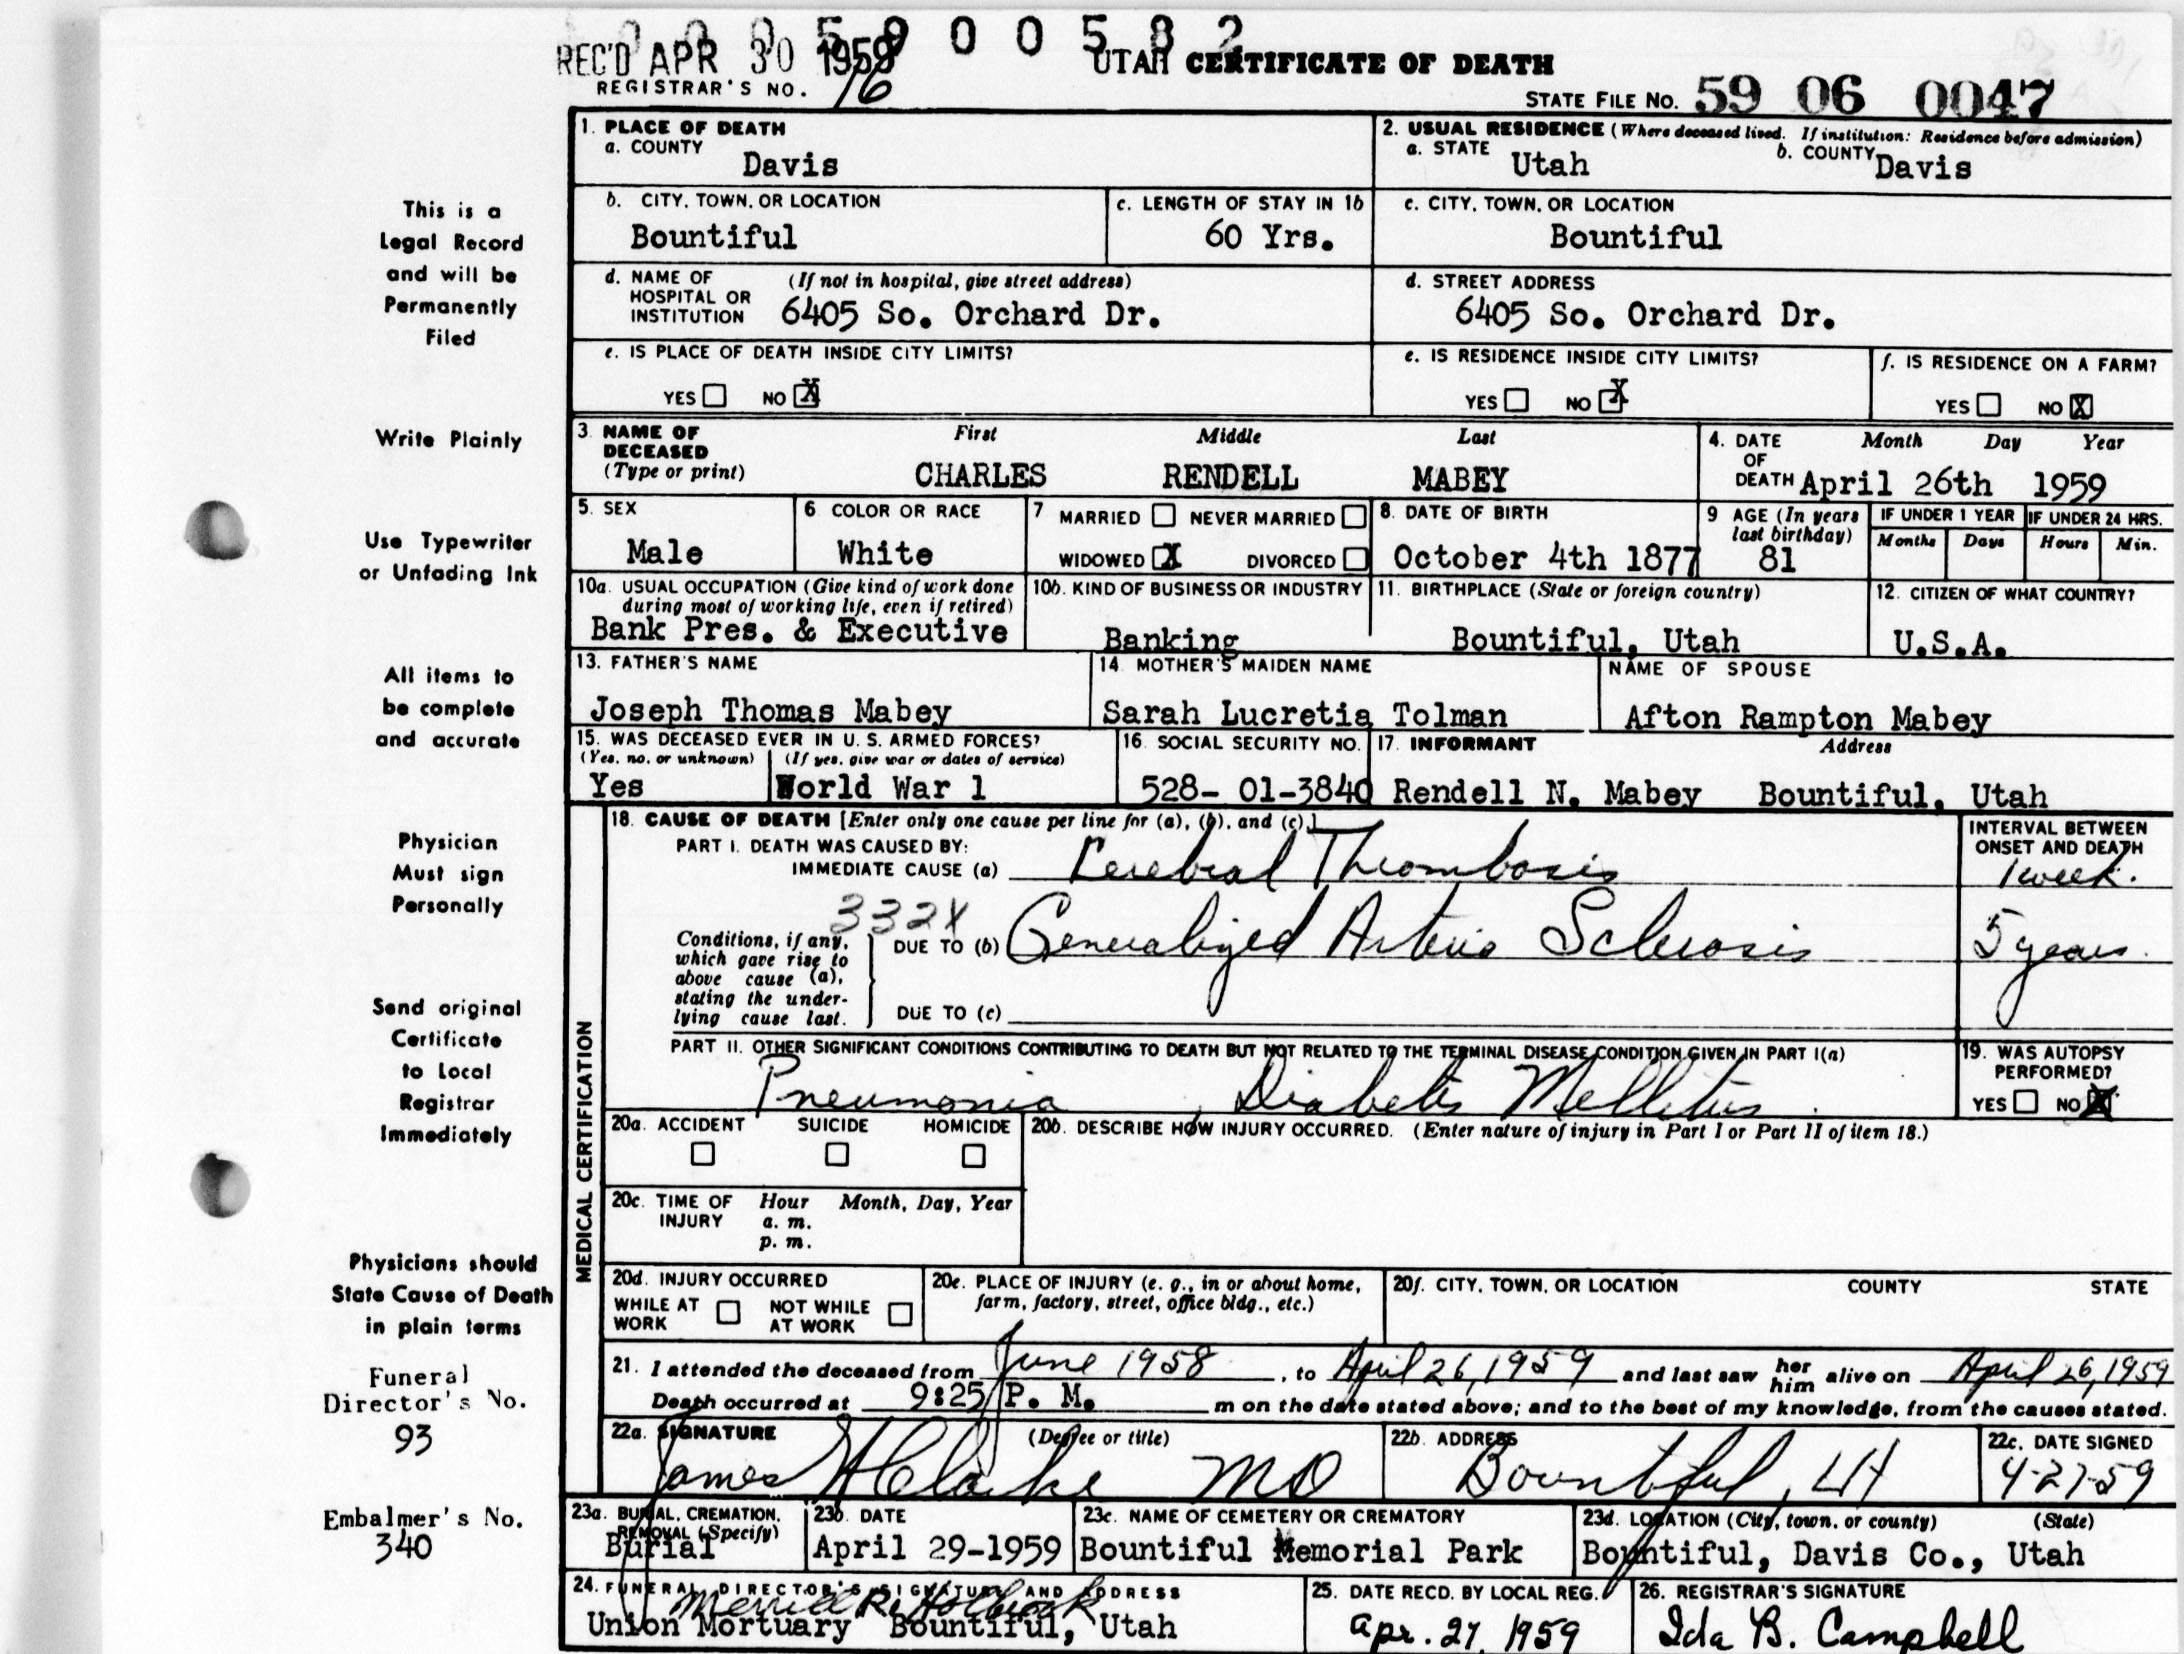 0 0 0 5 9 0 0 5 8 2
REC'D APR 30 1959
UTAH CERTIFICATE OF DEATH
REGISTRAR'S NO. 16
STATE FILE No. 59 06 0047
This is a
Legal Record
and will be
Permanently
Filed
Write Plainly
Use Typewriter
or Unfading Ink
All items to
be complete
and accurate
Physician
Must sign
Personally
Send original
Certificate
to Local
Registrar
Immediately
Physicians should
State Cause of Death
in plain terms
Funeral
Director's No.
93
Embalmer's No.
340
1. PLACE OF DEATH
a. COUNTY
Davis
2. USUAL RESIDENCE (Where deceased lived. If institution: Residence before admission)
a. STATE Utah b. COUNTY Davis
b. CITY, TOWN, OR LOCATION
Bountiful
c. LENGTH OF STAY IN 1b
60 Yrs.
c. CITY, TOWN, OR LOCATION
Bountiful
d. NAME OF (If not in hospital, give street address)
HOSPITAL OR
INSTITUTION 6405 So. Orchard Dr.
d. STREET ADDRESS
6405 So. Orchard Dr.
e. IS PLACE OF DEATH INSIDE CITY LIMITS?
YES NO X
e. IS RESIDENCE INSIDE CITY LIMITS?
YES NO X
f. IS RESIDENCE ON A FARM?
YES NO X
3. NAME OF DECEASED
(Type or print)
First Middle Last
CHARLES RENDELL MABEY
4. DATE OF DEATH
Month Day Year
April 26th 1959
5. SEX
Male
6. COLOR OR RACE
White
7 MARRIED NEVER MARRIED
WIDOWED X DIVORCED
8. DATE OF BIRTH
October 4th 1877
9 AGE (In years
last birthday)
81
IF UNDER 1 YEAR
Months Days
IF UNDER 24 HRS.
Hours Min.
10a. USUAL OCCUPATION (Give kind of work done
during most of working life, even if retired)
Bank Pres. & Executive
10b. KIND OF BUSINESS OR INDUSTRY
Banking
11. BIRTHPLACE (State or foreign country)
Bountiful, Utah
12. CITIZEN OF WHAT COUNTRY?
U.S.A.
13. FATHER'S NAME
Joseph Thomas Mabey
14. MOTHER'S MAIDEN NAME
Sarah Lucretia Tolman
NAME OF SPOUSE
Afton Rampton Mabey
15. WAS DECEASED EVER IN U. S. ARMED FORCES?
(Yes, no, or unknown) (If yes, give war or dates of service)
Yes World War 1
16. SOCIAL SECURITY NO.
528- 01-3840
17. INFORMANT Address
Rendell N. Mabey Bountiful, Utah
MEDICAL CERTIFICATION
18. CAUSE OF DEATH [Enter only one cause per line for (a), (b), and (c).]
PART I. DEATH WAS CAUSED BY:
IMMEDIATE CAUSE (a) Cerebral Thrombosis
INTERVAL BETWEEN
ONSET AND DEATH
1 week.
332X
Conditions, if any,
which gave rise to
above cause (a),
stating the under-
lying cause last.
DUE TO (b) Generalized Arterio Sclerosis
5 years.
DUE TO (c)
PART II. OTHER SIGNIFICANT CONDITIONS CONTRIBUTING TO DEATH BUT NOT RELATED TO THE TERMINAL DISEASE CONDITION GIVEN IN PART I(a)
Pneumonia, Diabetis Mellitus.
19. WAS AUTOPSY
PERFORMED?
YES NO X
20a. ACCIDENT SUICIDE HOMICIDE
20b. DESCRIBE HOW INJURY OCCURRED. (Enter nature of injury in Part I or Part II of item 18.)
20c. TIME OF INJURY
Hour Month, Day, Year
a. m.
p. m.
20d. INJURY OCCURRED
WHILE AT WORK NOT WHILE AT WORK
20e. PLACE OF INJURY (e. g., in or about home,
farm, factory, street, office bldg., etc.)
20f. CITY, TOWN, OR LOCATION COUNTY STATE
21. I attended the deceased from June 1958, to April 26, 1959 and last saw her him alive on April 26, 1959
Death occurred at 9:25 P. M. m on the date stated above; and to the best of my knowledge, from the causes stated.
22a. SIGNATURE (Degree or title)
James H Clarke MD
22b. ADDRESS
Bountiful, Ut
22c. DATE SIGNED
4-27-59
23a. BURIAL, CREMATION,
REMOVAL (Specify)
Burial
23b. DATE
April 29-1959
23c. NAME OF CEMETERY OR CREMATORY
Bountiful Memorial Park
23d. LOCATION (City, town, or county) (State)
Bountiful, Davis Co., Utah
24. FUNERAL DIRECTOR'S SIGNATURE AND ADDRESS
Merrill R. Holbrook
Union Mortuary Bountiful, Utah
25. DATE RECD. BY LOCAL REG.
Apr. 27, 1959
26. REGISTRAR'S SIGNATURE
Ida B. Campbell